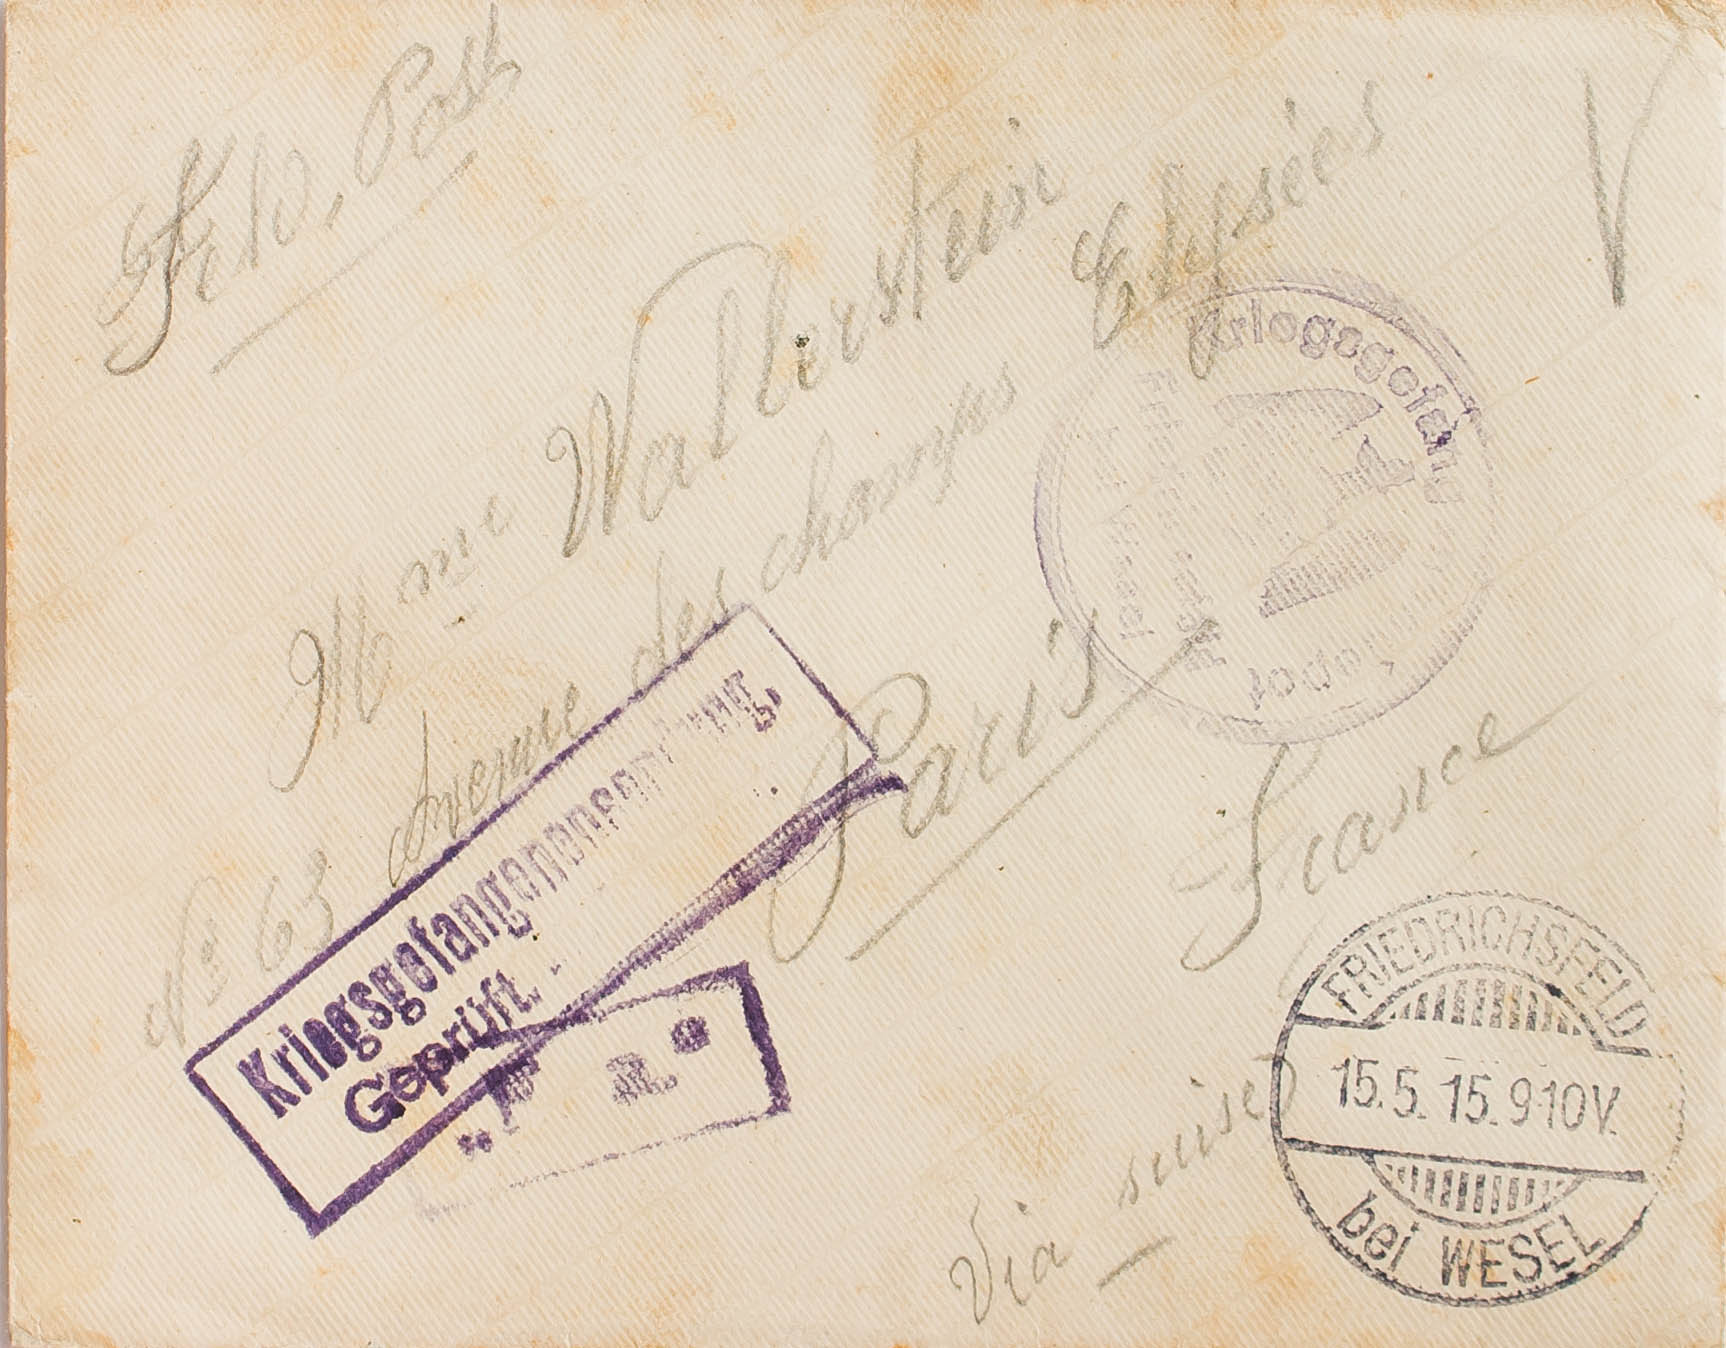 Feld, Post
Mme Wallerstein
No 63 Avenue des champs Elysées
Paris
France
Via suise
Kriegsgefangenensendung.
Geprüft.
F. a.
Kriegsgefang
Depot
FRIEDRICHSFELD
15.5.15.9-10V.
bei WESEL